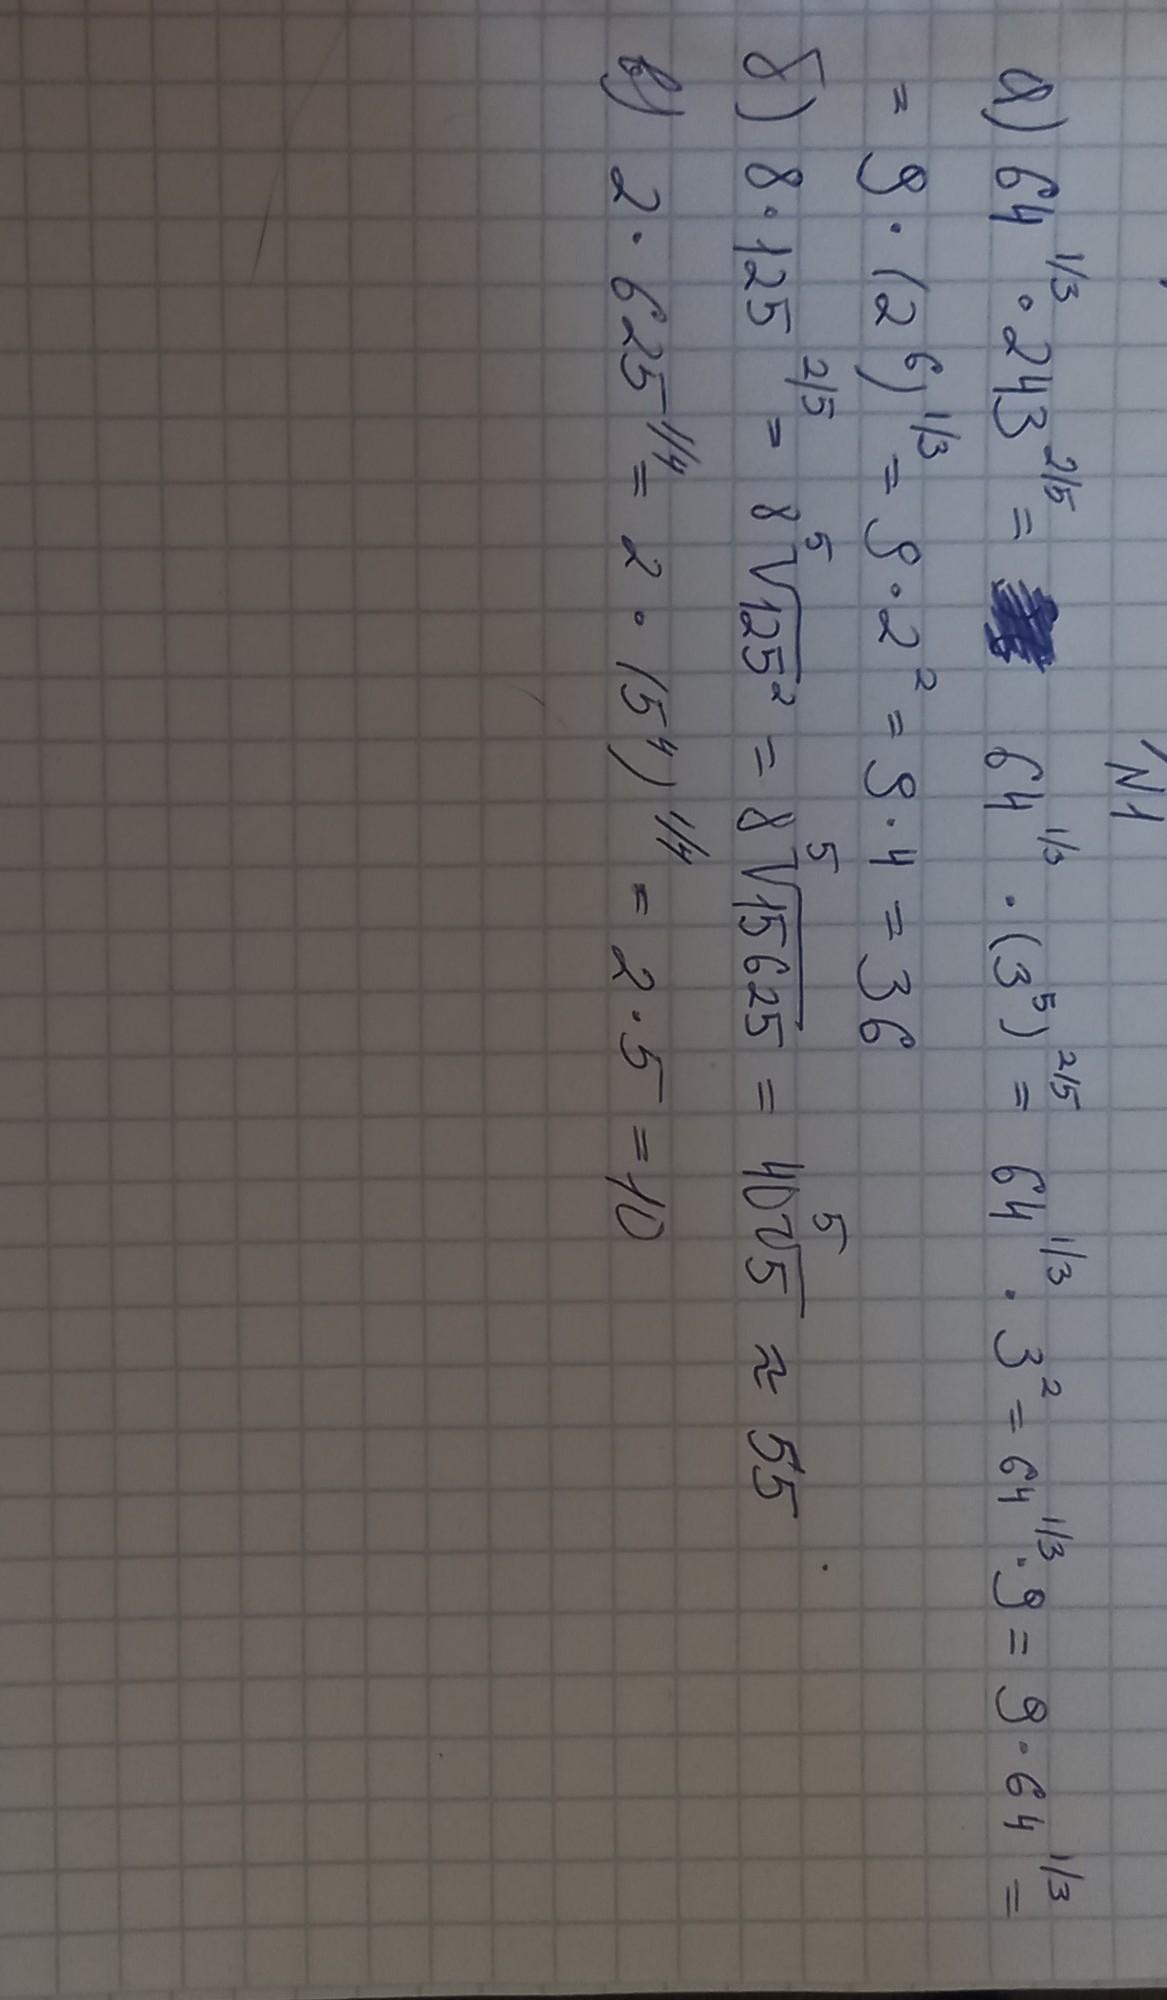 N1
а) 64^{1/3} · 243^{2/5} = 64^{1/3} · (3^5)^{2/5} = 64^{1/3} · 3^2 = 64^{1/3} · 9 = 9 · 64^{1/3} =
= 9 · (2^6)^{1/3} = 9 · 2^2 = 9 · 4 = 36
б) 8 · 125^{2/5} = 8 ⁵√125^2 = 8 ⁵√15625 = 40 ⁵√5 ≈ 55
в) 2 · 625^{1/4} = 2 · (5^4)^{1/4} = 2 · 5 = 10